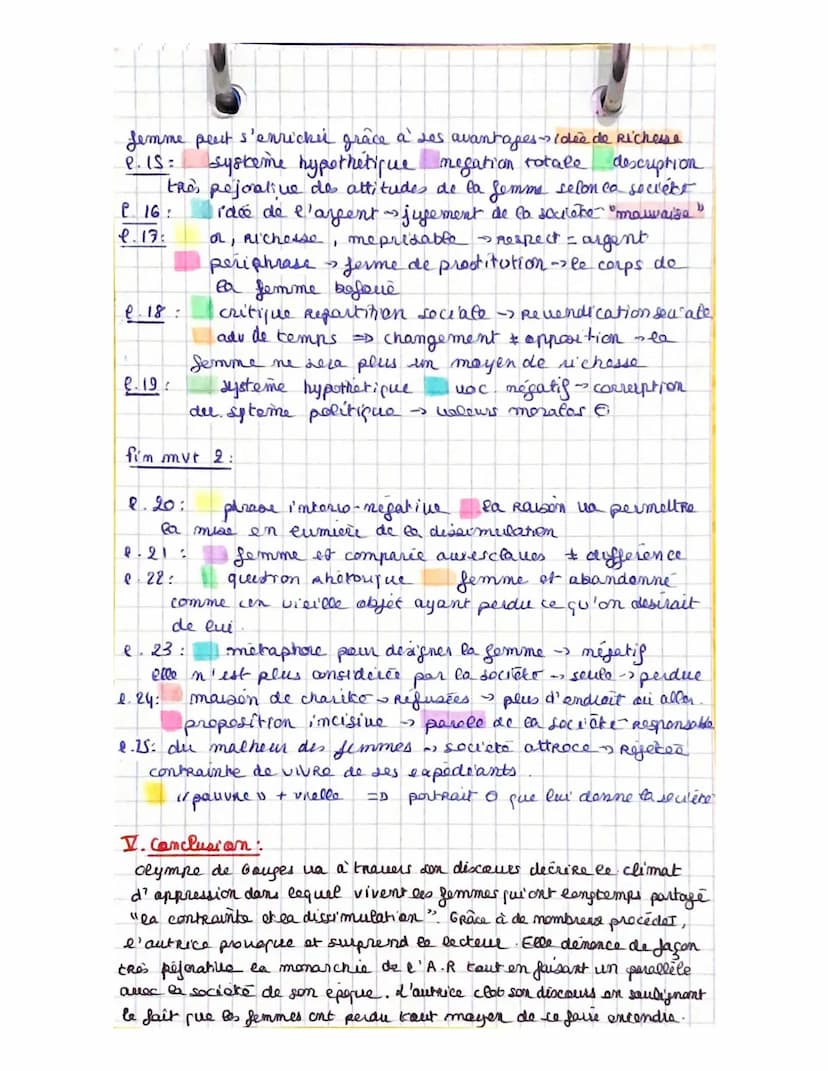 femme peut s'enrichir grâce à ses avantages → idée de Richesse
l.15 : système hypothétique négation totale description
très péjorative des attitudes de la femme selon la société
l.16 : idée de l'argent → jugement de la société "mauvaise"
l.17 : or, richesse, méprisable → respect = argent
périphrase → forme de prostitution → le corps de
la femme bafoué
l.18 : critique repartition sociale → Revendication sociale
adv de temps => changement ≠ opposition → la
femme ne sera plus un moyen de richesse
l.19 : système hypothétique voc. négatif → corruption
du sytème politique → valeurs morales ⊖
fin mvt 2 :
l.20 : phrase interro-négative la Raison va permettre
la mise en lumière de la dissimulation
l.21 : femme est comparée aux esclaves ≠ différence
l.22 : question rhétorique femme est abandonné
comme un vieille objet ayant perdu ce qu'on désirait
de lui
l.23 : métaphore pour désigner la femme → négatif
elle n'est plus considérée par la société → seule → perdue
l.24: maison de charité → Réfusées → plus d'endroit où aller.
proposition incisive → parole de la société Responsable
l.25: du malheur des femmes → société attroce → Rejetée
contrainte de vivre de ses expédiants.
"pauvre" + vielle => portrait ⊖ que lui donne la société
V. Conclusion :
Olympe de Gouges va à travers son discours décrire le climat
d'oppression dans lequel vivent les femmes qui ont longtemps partagé
"la contrainte et la dissimulation". Grâce à de nombreux procédés,
l'autrice provoque et surprend le lecteur. Elle dénonce de façon
très péjorative la monarchie de l'A.R tout en faisant un parallèle
avec la société de son époque. L'autrice clot son discours en soulignant
le fait que les femmes ont perdu tout moyen de se faire entendre.